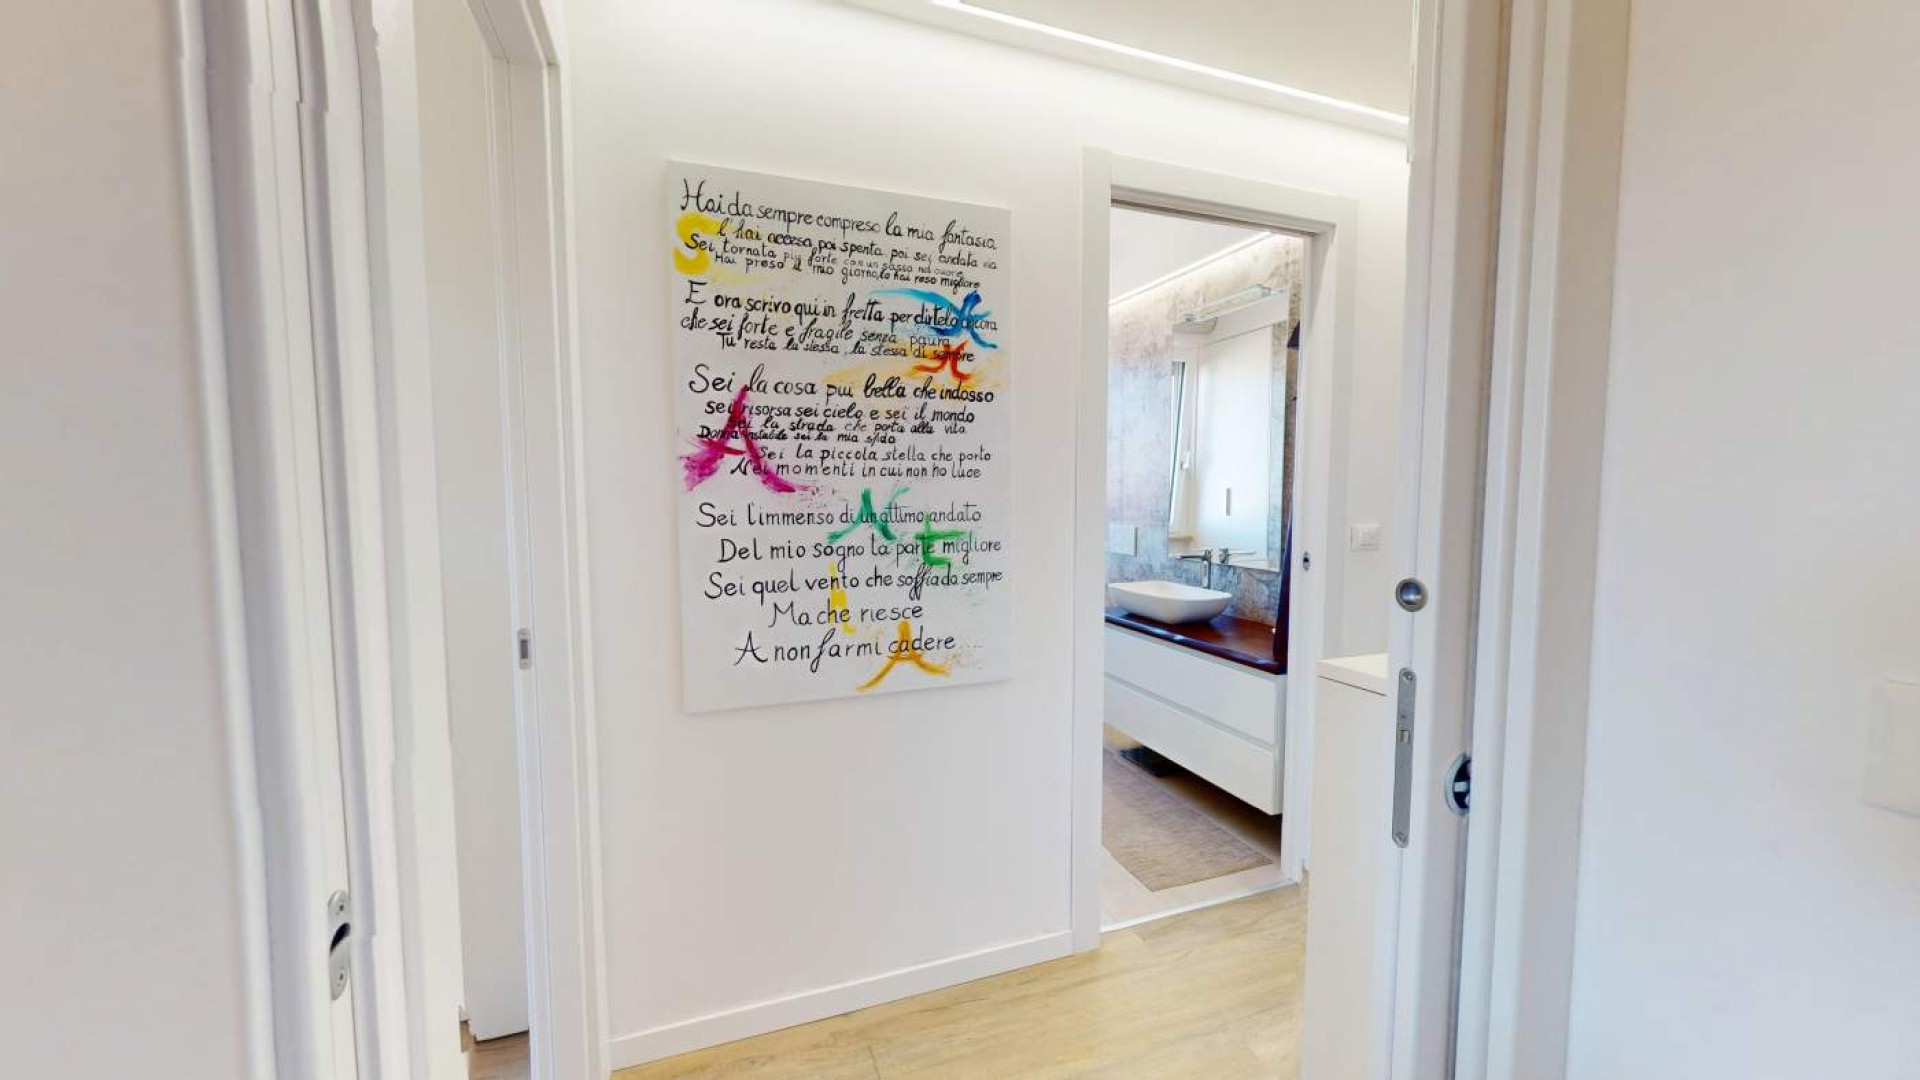 Hai da sempre compreso la mia fantasia
l'hai accesa, poi spenta poi sei andata via
Sei tornata più forte con un sasso nel cuore
Hai preso il mio giorno, lo hai reso migliore
E ora scrivo qui in fretta per dirtelo ancora
che sei forte e fragile senza paura
Tu resta la stessa, la stessa di sempre
Sei la cosa pui bella che indosso
sei risorsa sei cielo e sei il mondo
Sei la strada che porta alla vita
Donna instabile sei la mia sfida
Sei la piccola stella che porto
Nei momenti in cui non ho luce
Sei l'immenso di un attimo andato
Del mio sogno la parte migliore
Sei quel vento che soffia da sempre
Ma che riesce
A non farmi cadere....